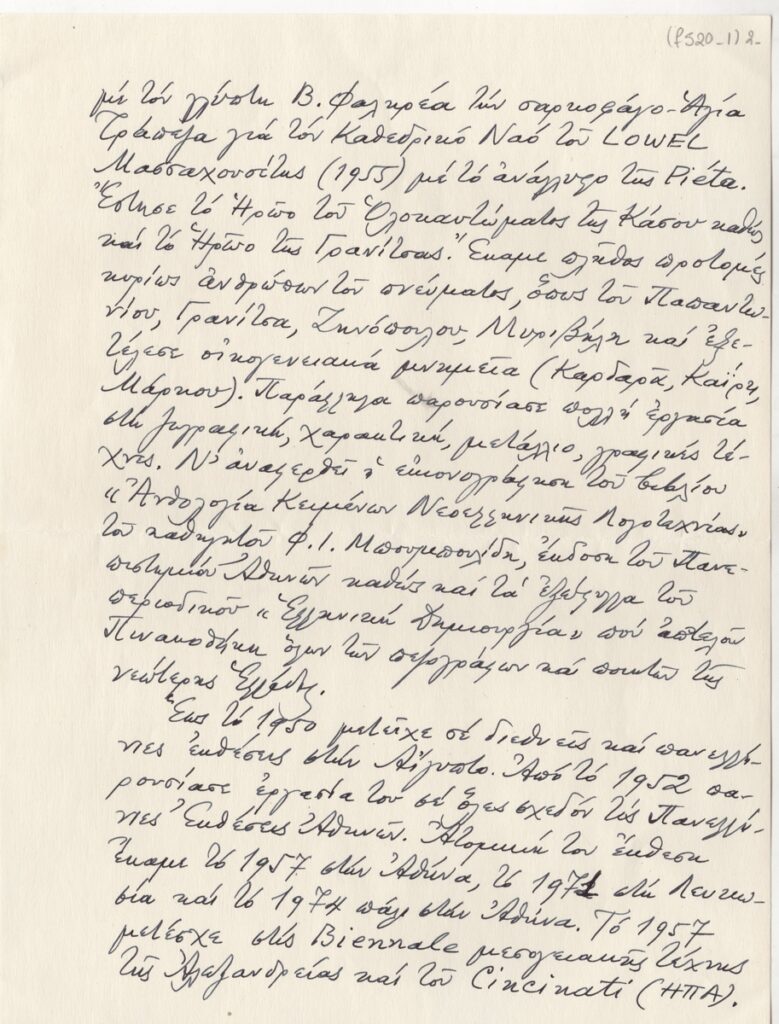 (f520-1) 2-
μέ τόν γλύπτη Β. Φαληρέα τήν σαρκοφάγο-Ἁγία
Τράπεζα γιά τόν Καθεδρικό Ναό τοῦ LOWEL
Μασσαχουσέτης (1955) μέ τό ἀνάγλυφο τῆς Piéta.
Ἔστησε τό Ἡρῶο τοῦ Ὁλοκαυτώματος τῆς Κάσου καθώς
καί τό Ἡρῶο τῆς Γρανίτσας. Ἔκαμε πλῆθος προτομές
κυρίως ἀνθρώπων τοῦ πνεύματος, ὅπως τοῦ Παπαντω-
νίου, Γρανίτσα, Ξενόπουλου, Μυριβήλη καί ἐξε-
τέλεσε οἰκογενειακά μνημεῖα (Καρδαρᾶ, Καΐρη,
Μάρκου). Παράλληλα παρουσίασε πολλή ἐργασία
στή ζωγραφική, χαρακτική, μετάλλιο, γραφικές τέ-
χνες. Ν' ἀναφερθεῖ ἡ εἰκονογράφηση τοῦ βιβλίου
«Ἀνθολογία Κειμένων Νεοελληνικῆς Λογοτεχνίας»
τοῦ καθηγητοῦ Φ. Ι. Μπουμπουλίδη, ἔκδοση τοῦ Πανε-
πιστημίου Ἀθηνῶν καθώς καί τά ἐξώφυλλα τοῦ
περιοδικοῦ «Ἑλληνική Δημιουργία» πού ἀποτελοῦν
Πινακοθήκη ὅλων τῶν πεζογράφων καί ποιητῶν τῆς
νεώτερης Ἑλλάδος.
Ἕως τό 1950 μετεῖχε σέ διεθνεῖς καί πανελλή-
νιες ἐκθέσεις στήν Αἴγυπτο. Ἀπό τό 1952 πα-
ρουσίασε ἐργασία του σέ ὅλες σχεδόν τίς Πανελλή-
νιες Ἐκθέσεις Ἀθηνῶν. Ἀτομική του ἔκθεση
ἔκαμε τό 1957 στήν Ἀθήνα, τό 1971 στή Λευκω-
σία καί τό 1974 πάλι στήν Ἀθήνα. Τό 1957
μετέσχε στίς Biennale μεσογειακῆς τέχνης
τῆς Ἀλεξανδρείας καί τοῦ Cincinati (ΗΠΑ).